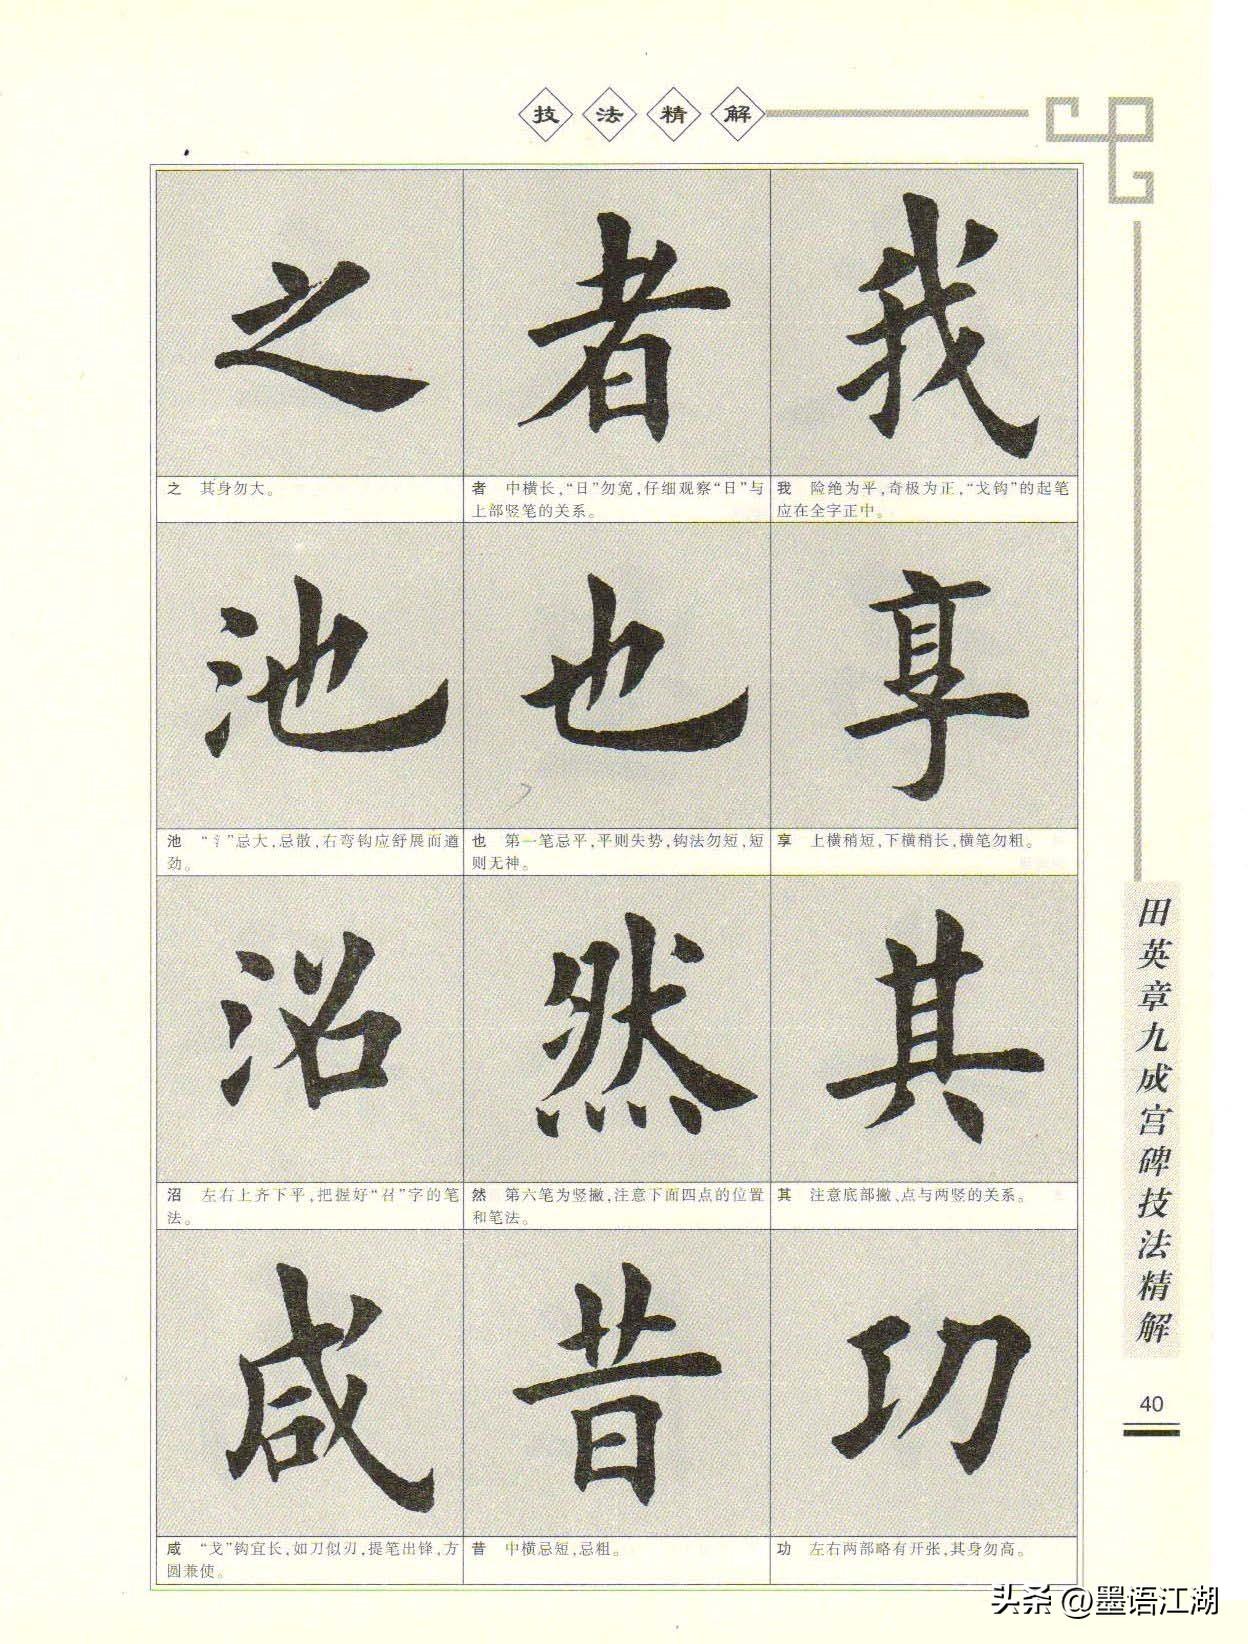 技法精解
之 者 我
之 其身勿大。
者 中横长,“日”勿宽,仔细观察“日”与
上部竖笔的关系。
我 险绝为平,奇极为正,“戈钩”的起笔
应在全字正中。
池 也 享
池 “氵”忌大,忌散,右弯钩应舒展而遒
劲。
也 第一笔忌平,平则失势,钩法勿短,短
则无神。
享 上横稍短,下横稍长,横笔勿粗。
沼 然 其
沼 左右上齐下平,把握好“召”字的笔
法。
然 第六笔为竖撇,注意下面四点的位置
和笔法。
其 注意底部撇、点与两竖的关系。
咸 昔 功
咸 “戈”钩宜长,如刀似刃,提笔出锋,方
圆兼使。
昔 中横忌短,忌粗。
功 左右两部略有开张,其身勿高。
田英章九成宫碑技法精解
40
头条 @墨语江湖